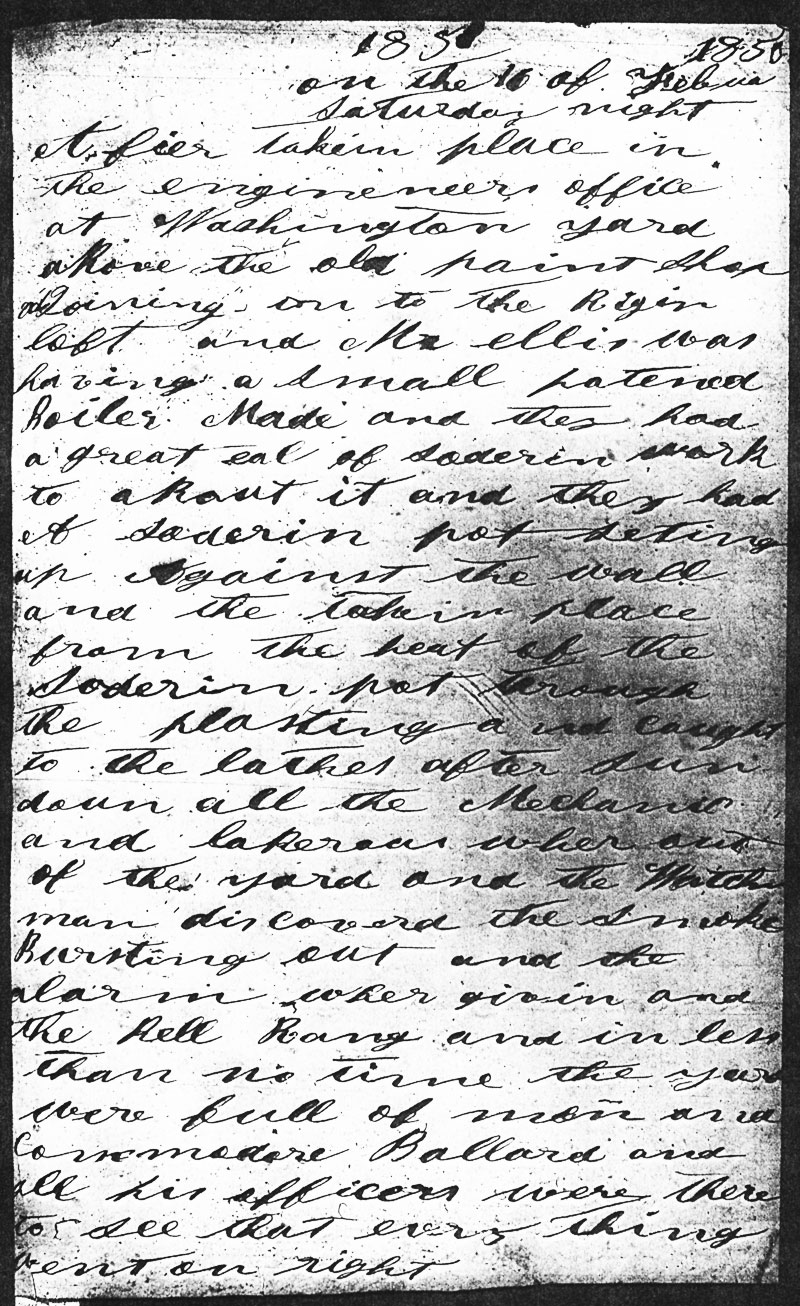 185 1850
on the 16 of Febua
Saturday night
A fier takin place in
the engineneers office
at Washington yard
above the old paint shop
adJoining on to the Rigin
loft and Mr ellis was
having a Small patened
Boiler Made and they had
a great eal of soderin work
to about it and they had
A soderin pot seting
up Against the wall
and the takin place
from the heat of the
Soderin pot through
the plasting and caught
to the lathes after sun
down all the Mechanic
and laberous wher out
of the yard and the Watch
man discoverd the smoke
Bursting out and the
alarm wher givin and
the bell Rang and in less
than no time the yard
were full of men and
Commodore Ballard and
all his officers were there
to see that every thing
went on right